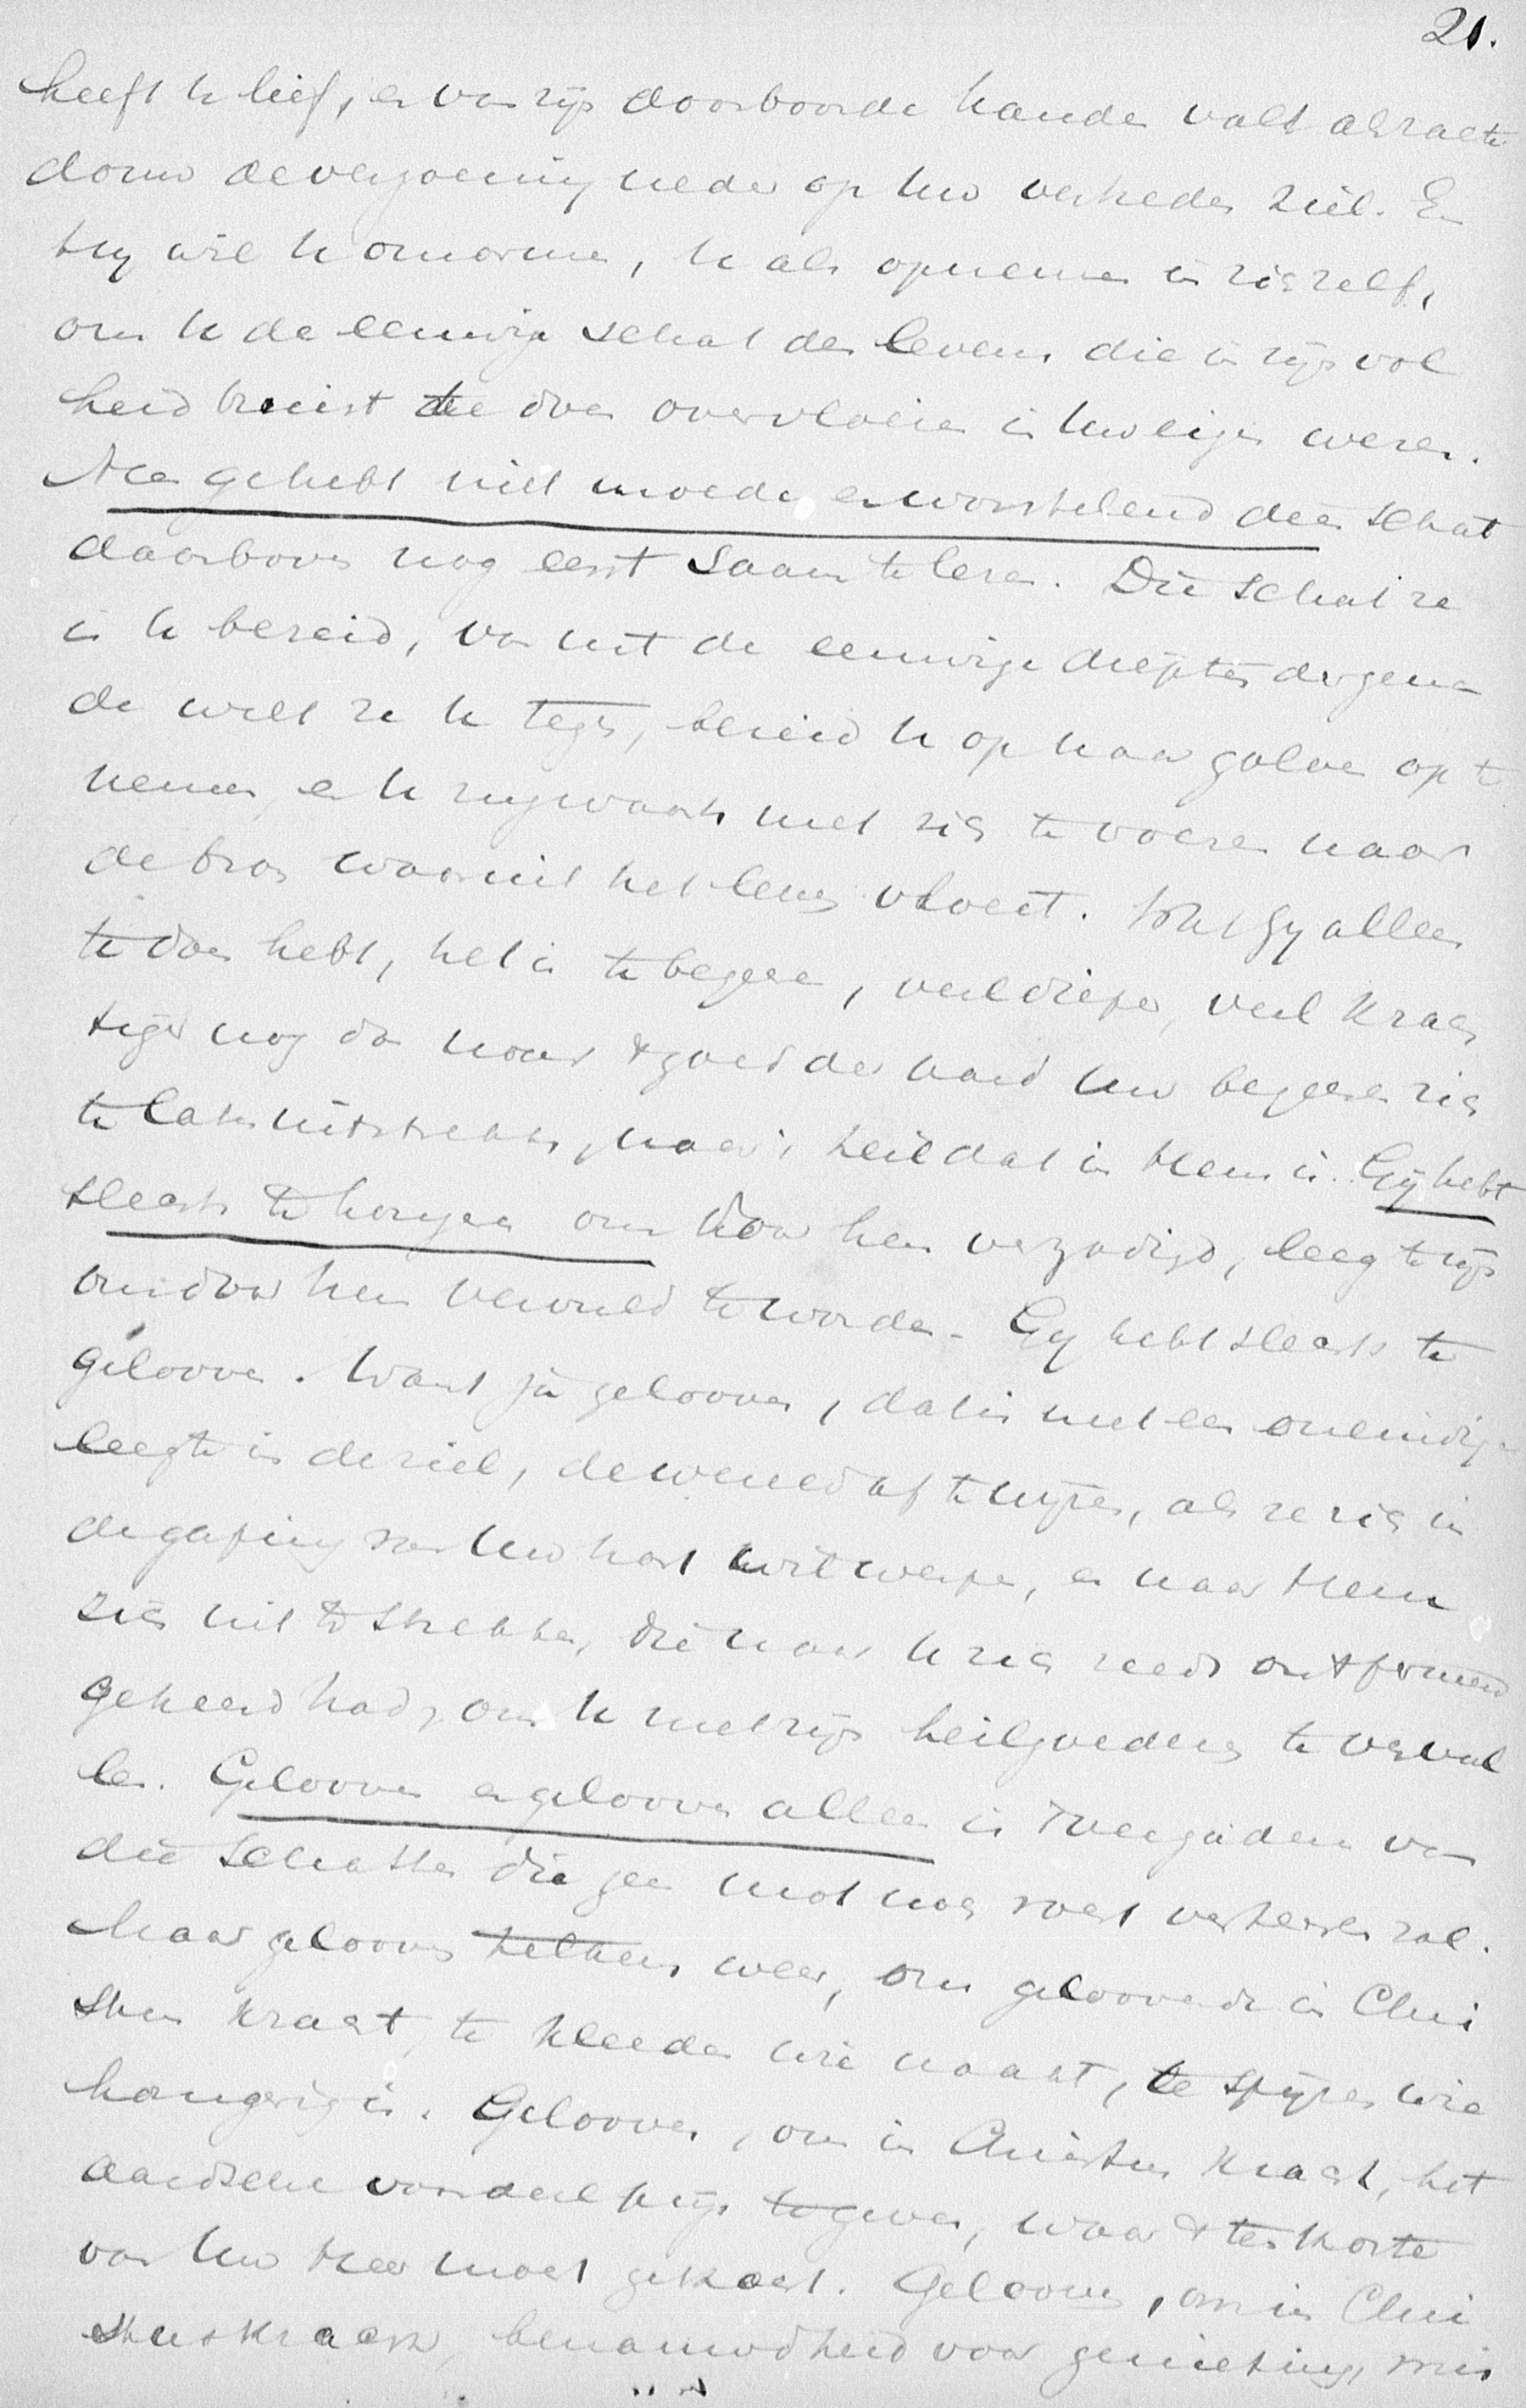 21.
heeft U lief, en van zijn doorboorde handen valt als zachte
douw de vergoeding neder op uw verheden ziel. En
Hij wil U omarmen, U als opnemen in zich zelf,
om U de eeuwige schat des levens die in zijn vol
heid bruist te doen overvloeien in Uw eigen wezen.
Nee ge hebt niet moede en worstelend dien schat
daarboven nog eerst saam te lezen. Die schat ze
is U bereid, van uit de eeuwige diepten der gena
de welt ze U tegen, bereid U op haar golven op te
nemen, en U rugwaarts met zich te voeren naar
de bron waaruit het leven vloeit. Wat Gij alleen
te doen hebt, het is te begeeren, veel dieper, veel krach
tiger nog dan naar 't goed der aard Uw begeeren zich
te laten uitstrekken, naar 't heil dat in Hem is. Gij hebt
slechts te hongeren om door hem verzadigd, leeg te zijn
om door hem vervuld te worden. Gij hebt slechts te
gelooven. Want ja gelooven, dat is met een oneindige
leegte in de ziel, de wereld af te wijzen, als ze zich in
de gaping van Uw hart wil werpen, en naar Hem
zich uit te strekken, die naar U zich reeds ontfermend
gekeerd had, om U met zijn heilgoederen te vervul
len. Gelooven en gelooven alleen is 't vergaderen van
die schatten die geen mot noch roest verteren zal.
Maar gelooven telkens weer, om geloovende in Chri
stus kracht, te kleeden wie naakt, te spijzen wie
hongerig is. Gelooven, om in Christus kracht, het
aardsche voordeel prijs te geven, waar 't ten koste
van Uw Heer moet gekocht. Gelooven, om in Chri
stus kracht, benauwdheid voor genieting, mis